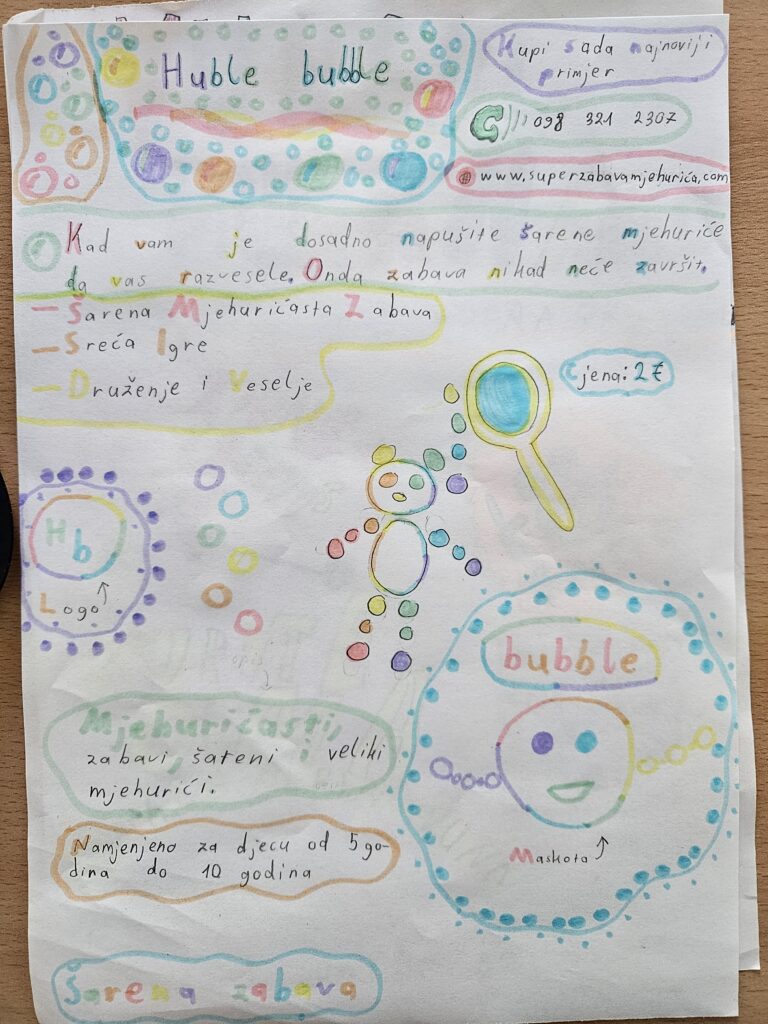 Huble bubble
Kupi sada najnoviji
primjer
098 321 2307
www.superzabavamjehurića.com
Kad vam je dosadno napušite šarene mjehuriće
da vas razvesele. Onda zabava nikad neće završit.
– Šarena Mjehurićasta Zabava
– Sreća Igre
– Druženje i Veselje
Cjena: 2 €
Hb
Logo
bubble
Maskota
Mjehurićasti,
zabavi, šareni i veliki
mjehurići.
Namjenjeno za djecu od 5 go-
dina do 10 godina
Šarena zabava